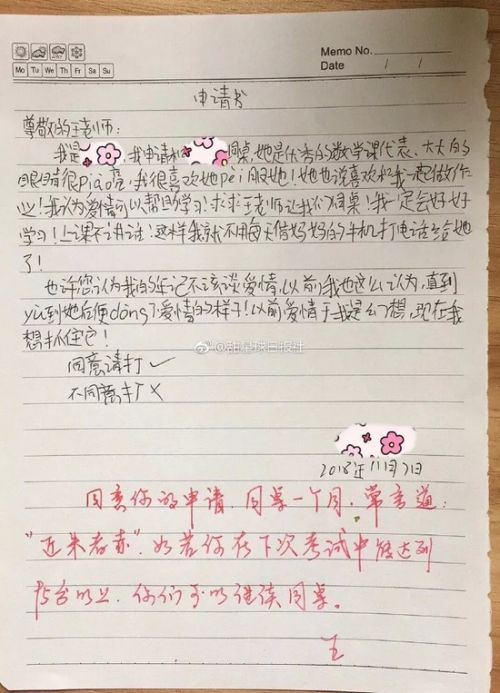 Memo No.
Mo Tu We Th Fr Sa Su
Date / /
申请书
尊敬的王老师:
我是 ,我申请和 同桌,她是优秀的数学课代表、大大的
眼睛很piào亮,我很喜欢她pèi服她!她也说喜欢和我一起做作
业!我认为爱情可以帮助学习!求求王老师让我们同桌!我一定会好好
学习!上课不讲话!这样我就不用每天借妈妈的手机打电话给她
了!
也许您认为我的年记不该谈爱情,以前我也这么认为,直到
yù到她后便dǒng了爱情的样子!以前爱情于我是幻想,现在我
想抓住它!
同意请打✓
不同意打×
@甜星球日报社
2018年11月7日
同意你的申请,同桌一个月,常言道:
“近朱者赤”,如若你在下次考试中能达到
75分以上,你们可以继续同桌。
王